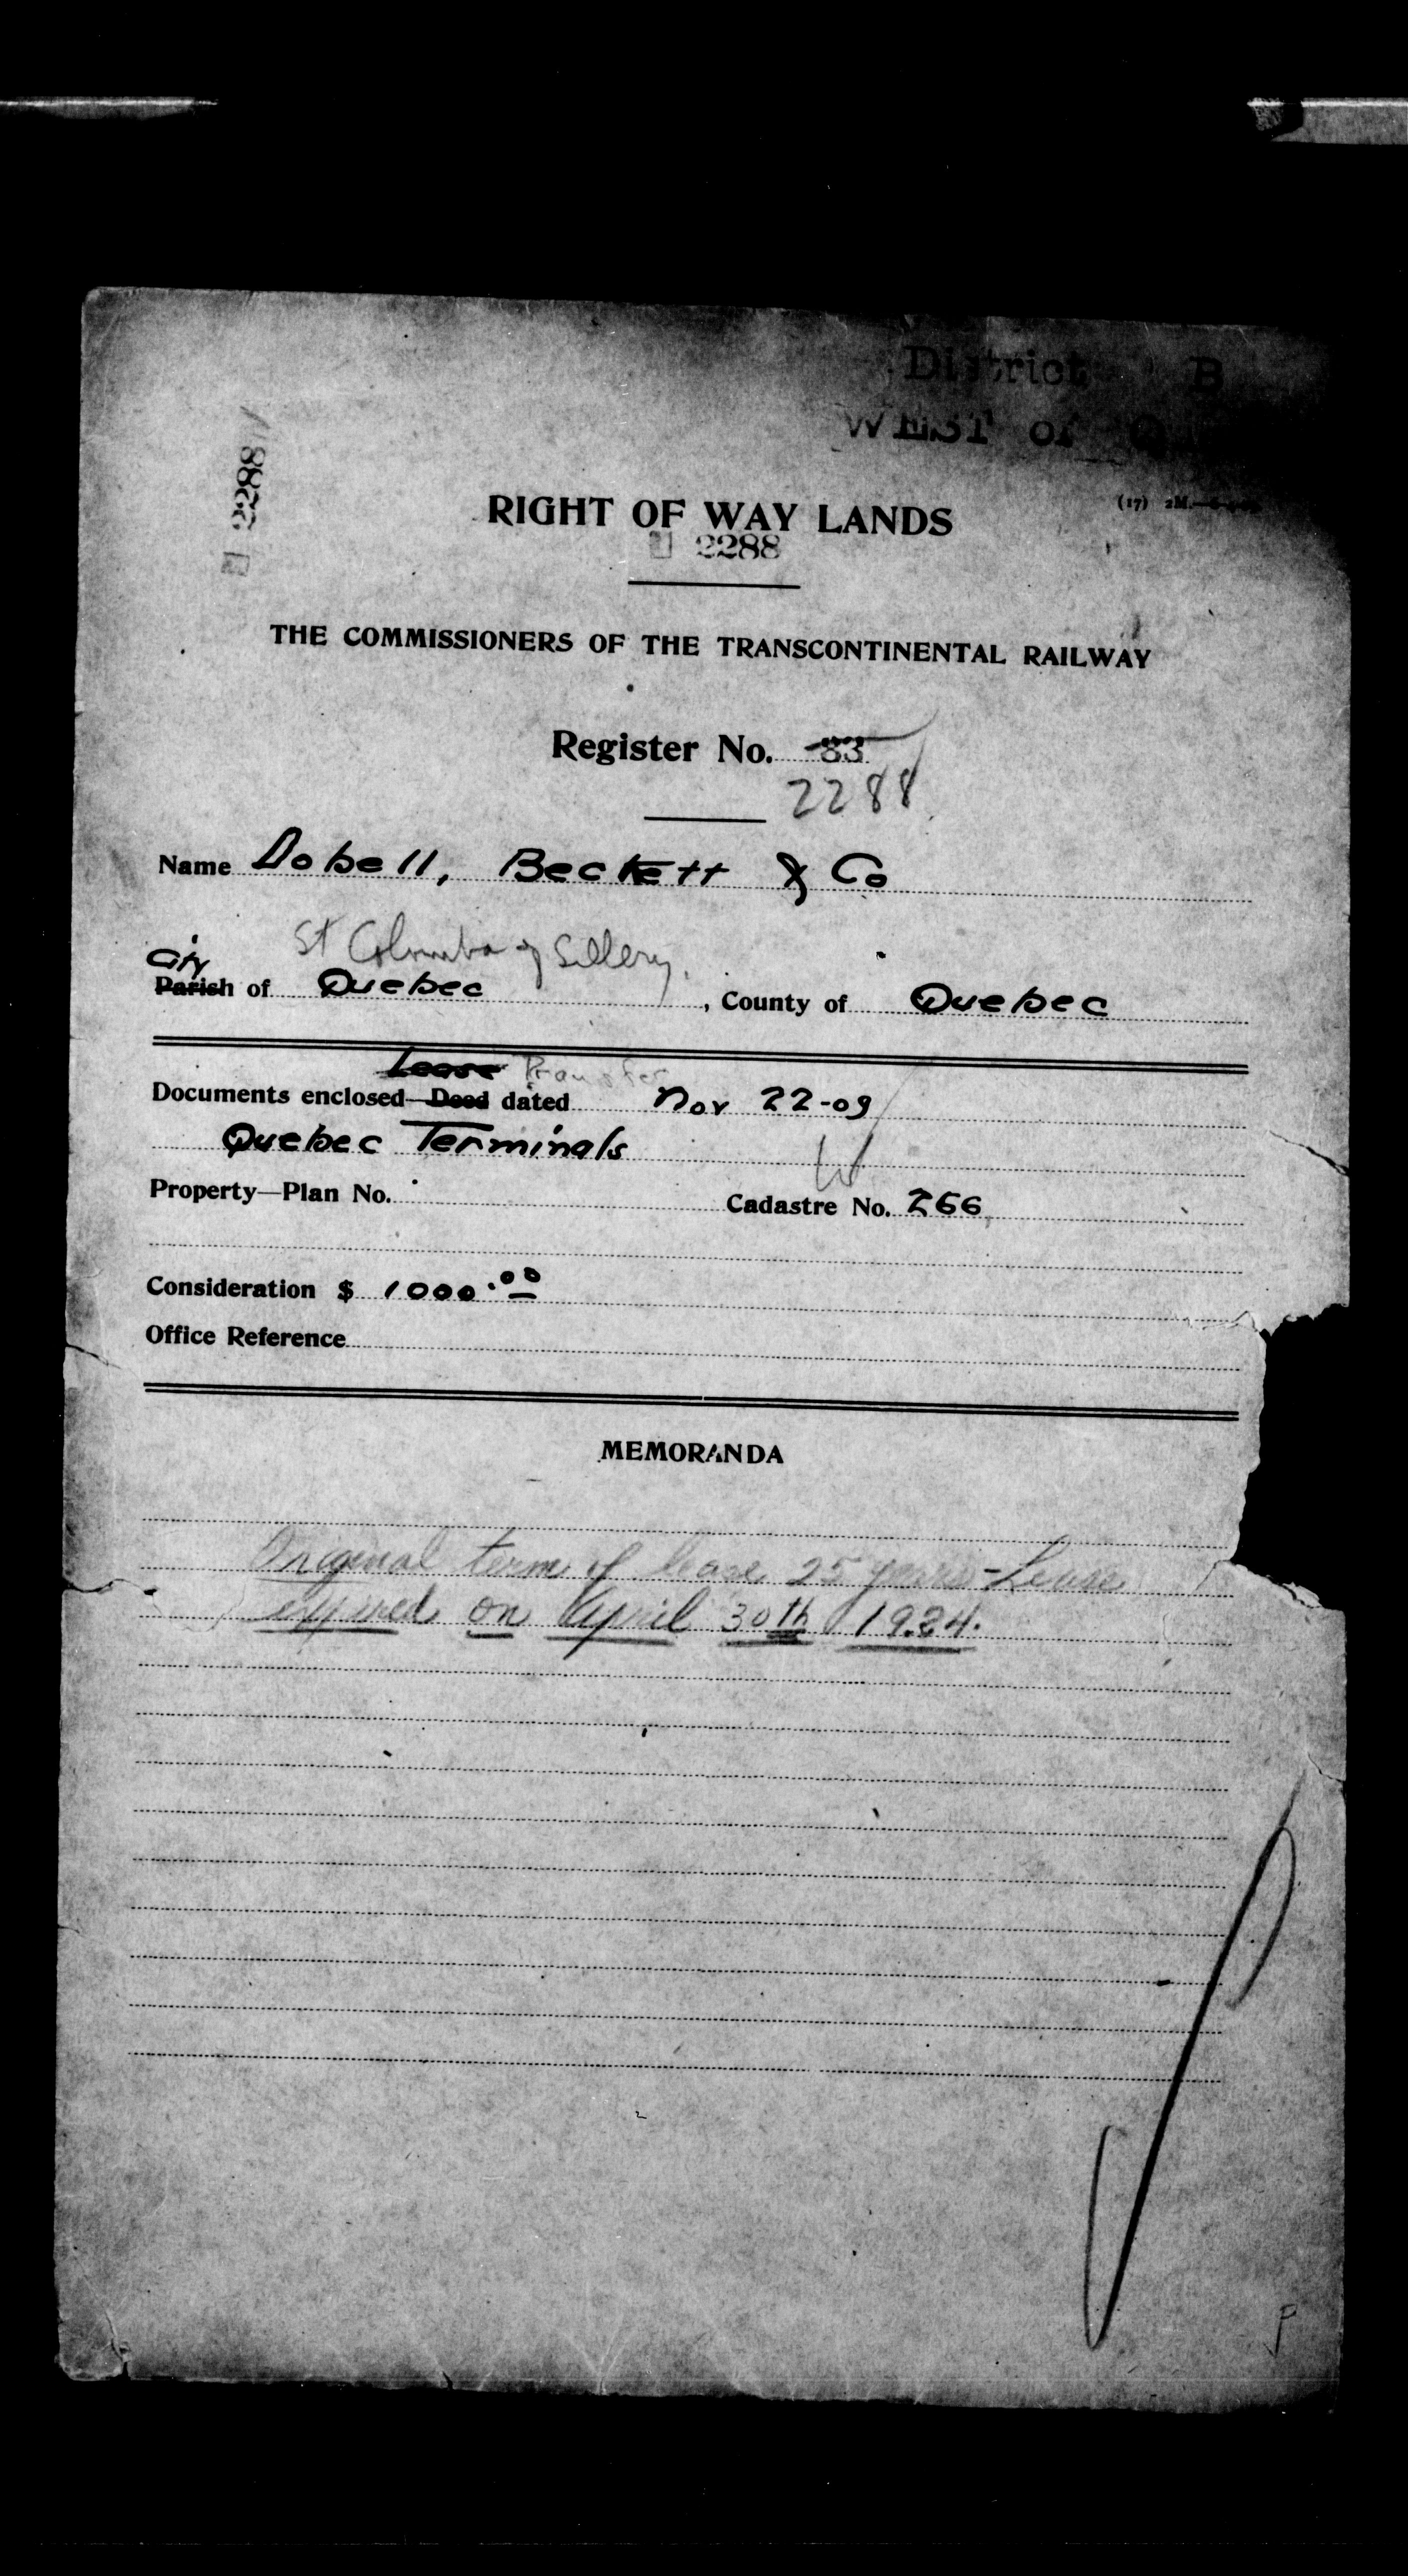 District B
WEST of
2288
(17) 2M.
RIGHT OF WAY LANDS
2288
THE COMMISSIONERS OF THE TRANSCONTINENTAL RAILWAY
Register No. 83
2288
Name Dobell, Beckett & Co
St Columba of Sillery,
City
Parish of Quebec, County of Quebec
Lease Transfer
Documents enclosed—Deed dated Nov 22-09
Quebec Terminals
Property—Plan No. Cadastre No. 266
Consideration $ 1000.00
Office Reference
MEMORANDA
Original term of lease 25 years - Lease
expired on April 30th 1924.